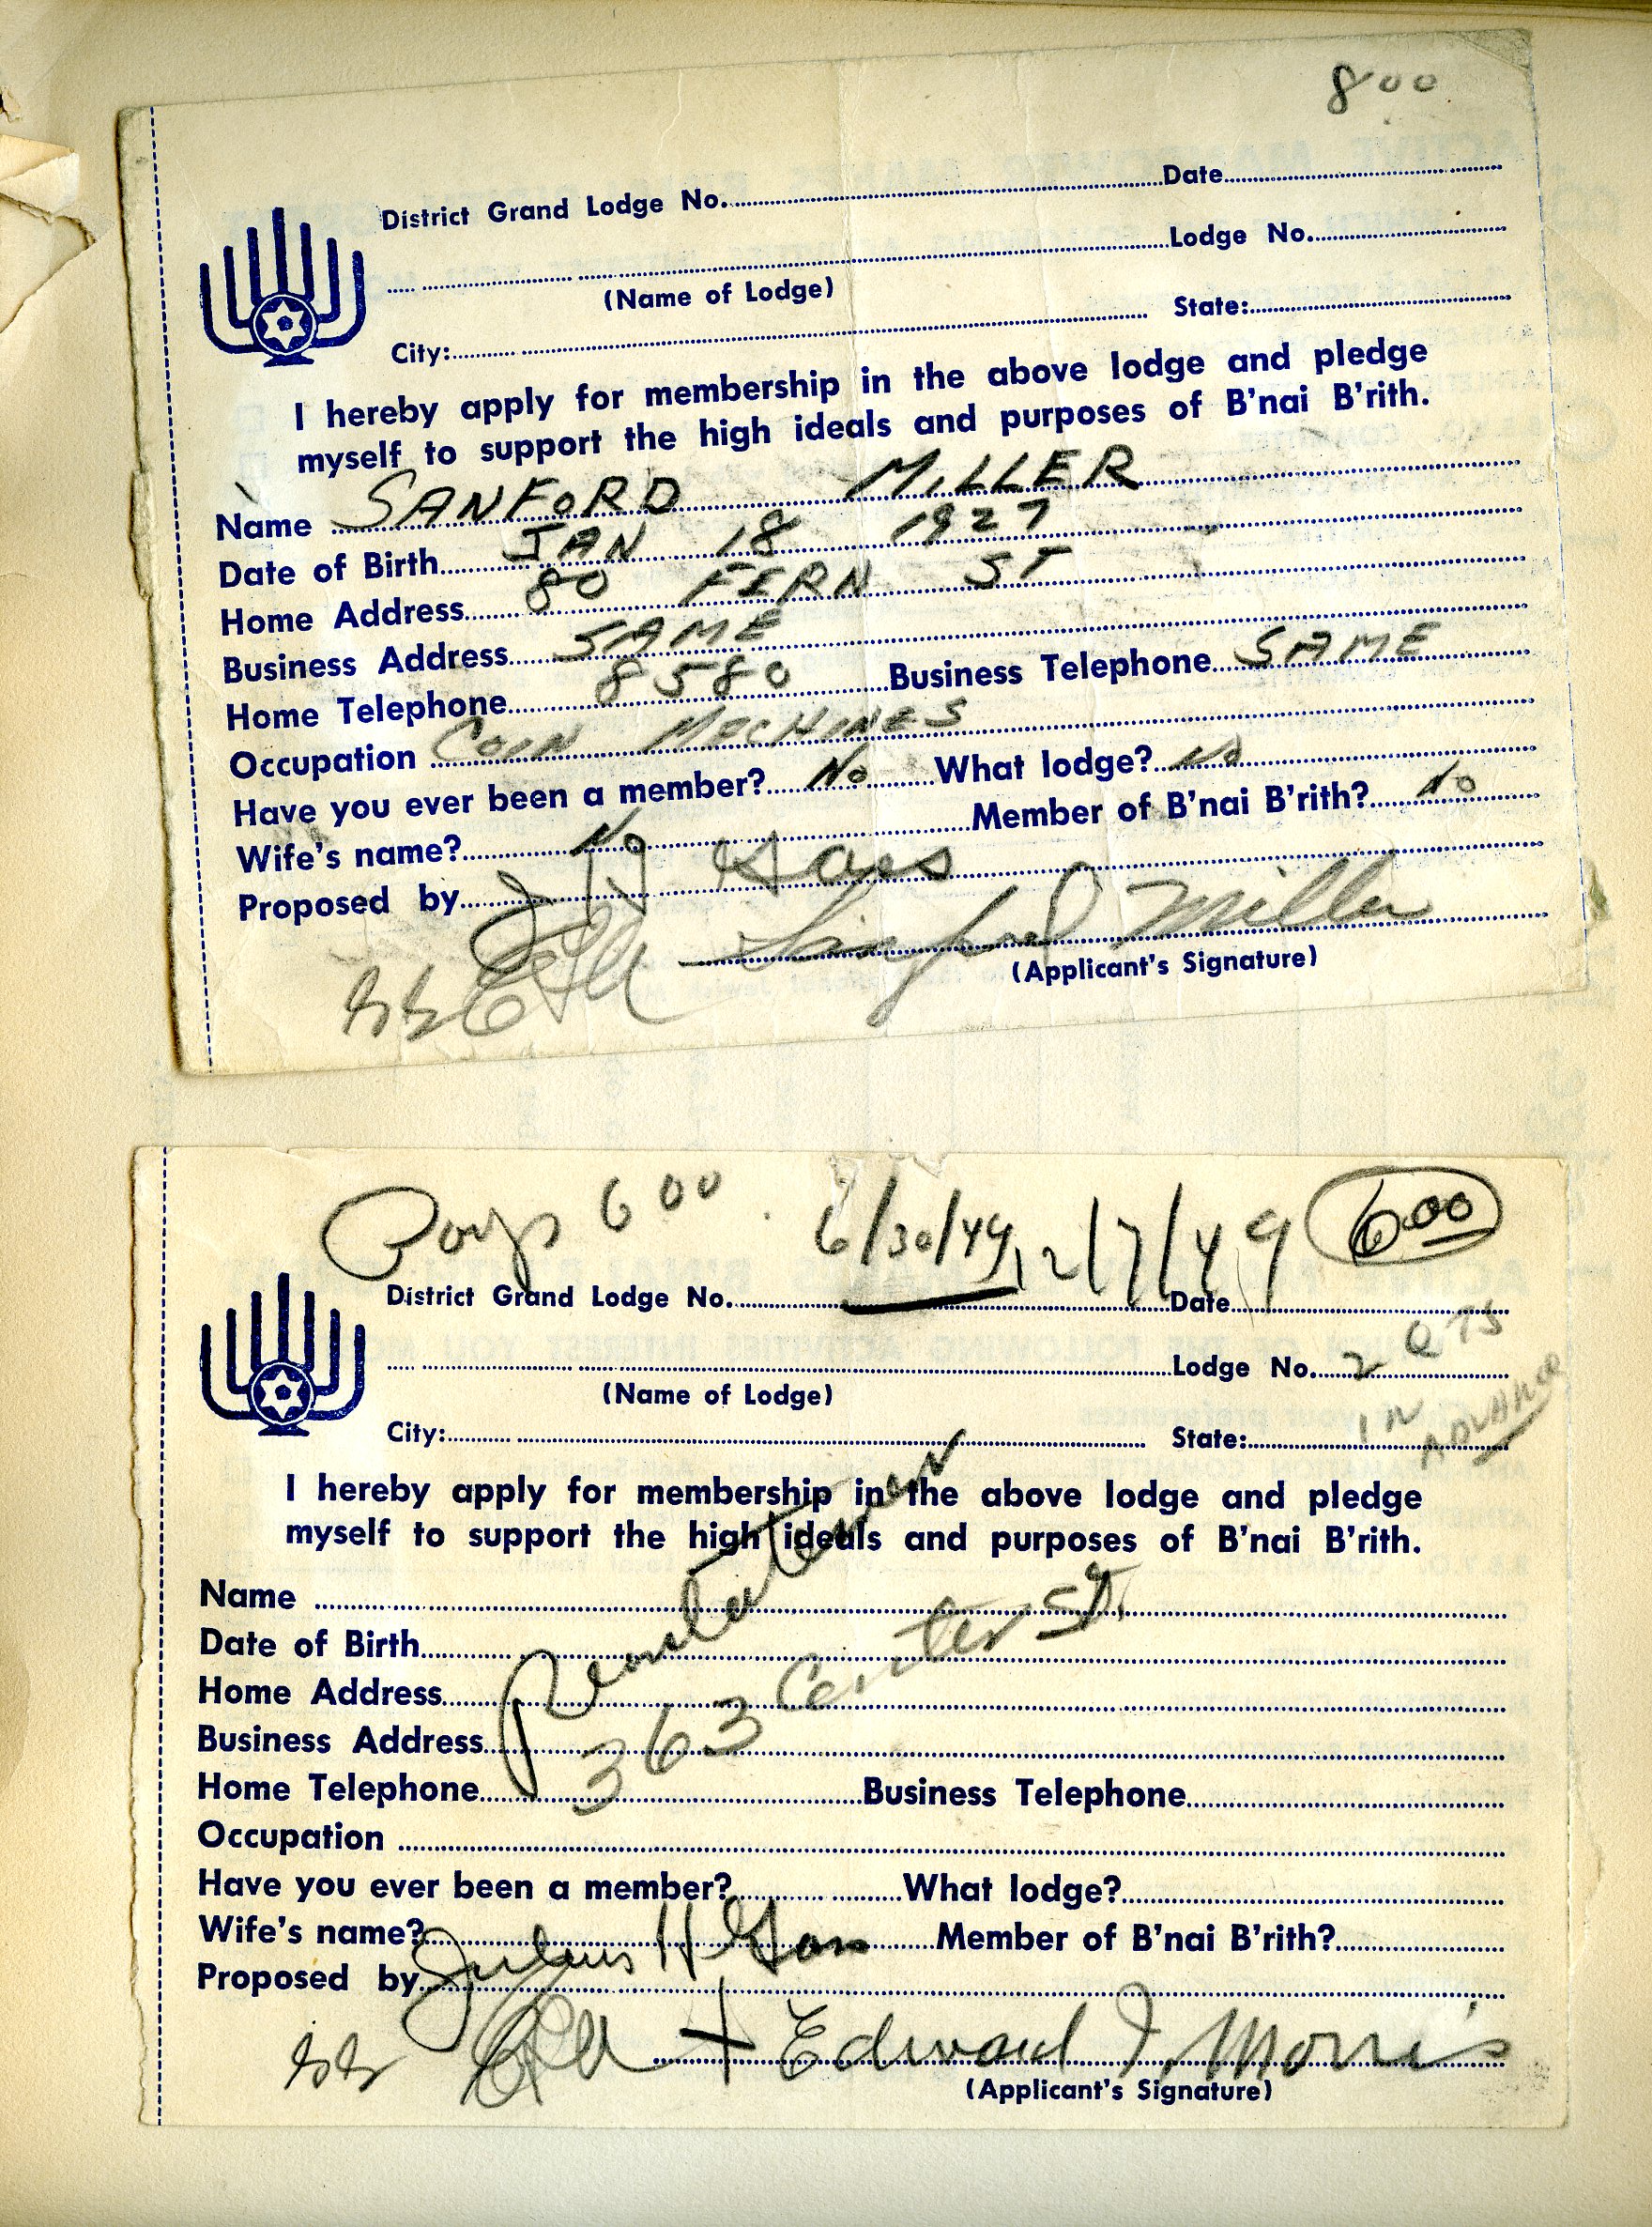 8 00
District Grand Lodge No. Date
Lodge No.
(Name of Lodge)
City: State:
I hereby apply for membership in the above lodge and pledge
myself to support the high ideals and purposes of B'nai B'rith.
Name SANFORD MILLER
Date of Birth JAN 18 1927
Home Address 80 FERN ST
Business Address SAME
Home Telephone 8580 Business Telephone SAME
Occupation COIN MACHINES
Have you ever been a member? No What lodge? No
Wife's name? No Member of B'nai B'rith? No
Proposed by J H Gans
Sanford Miller
(Applicant's Signature)
Pays 6 00 6/30/49 12/7/49 6 00
District Grand Lodge No. Date
Lodge No. 2 QTS
(Name of Lodge)
City: State: IN ADVANCE
I hereby apply for membership in the above lodge and pledge
myself to support the high ideals and purposes of B'nai B'rith.
Name
Date of Birth
Home Address
Business Address
363 Center St.
Home Telephone Business Telephone
Occupation
Have you ever been a member? What lodge?
Wife's name? Member of B'nai B'rith?
Proposed by Julius H Gans
+ Edward I. Morris
(Applicant's Signature)